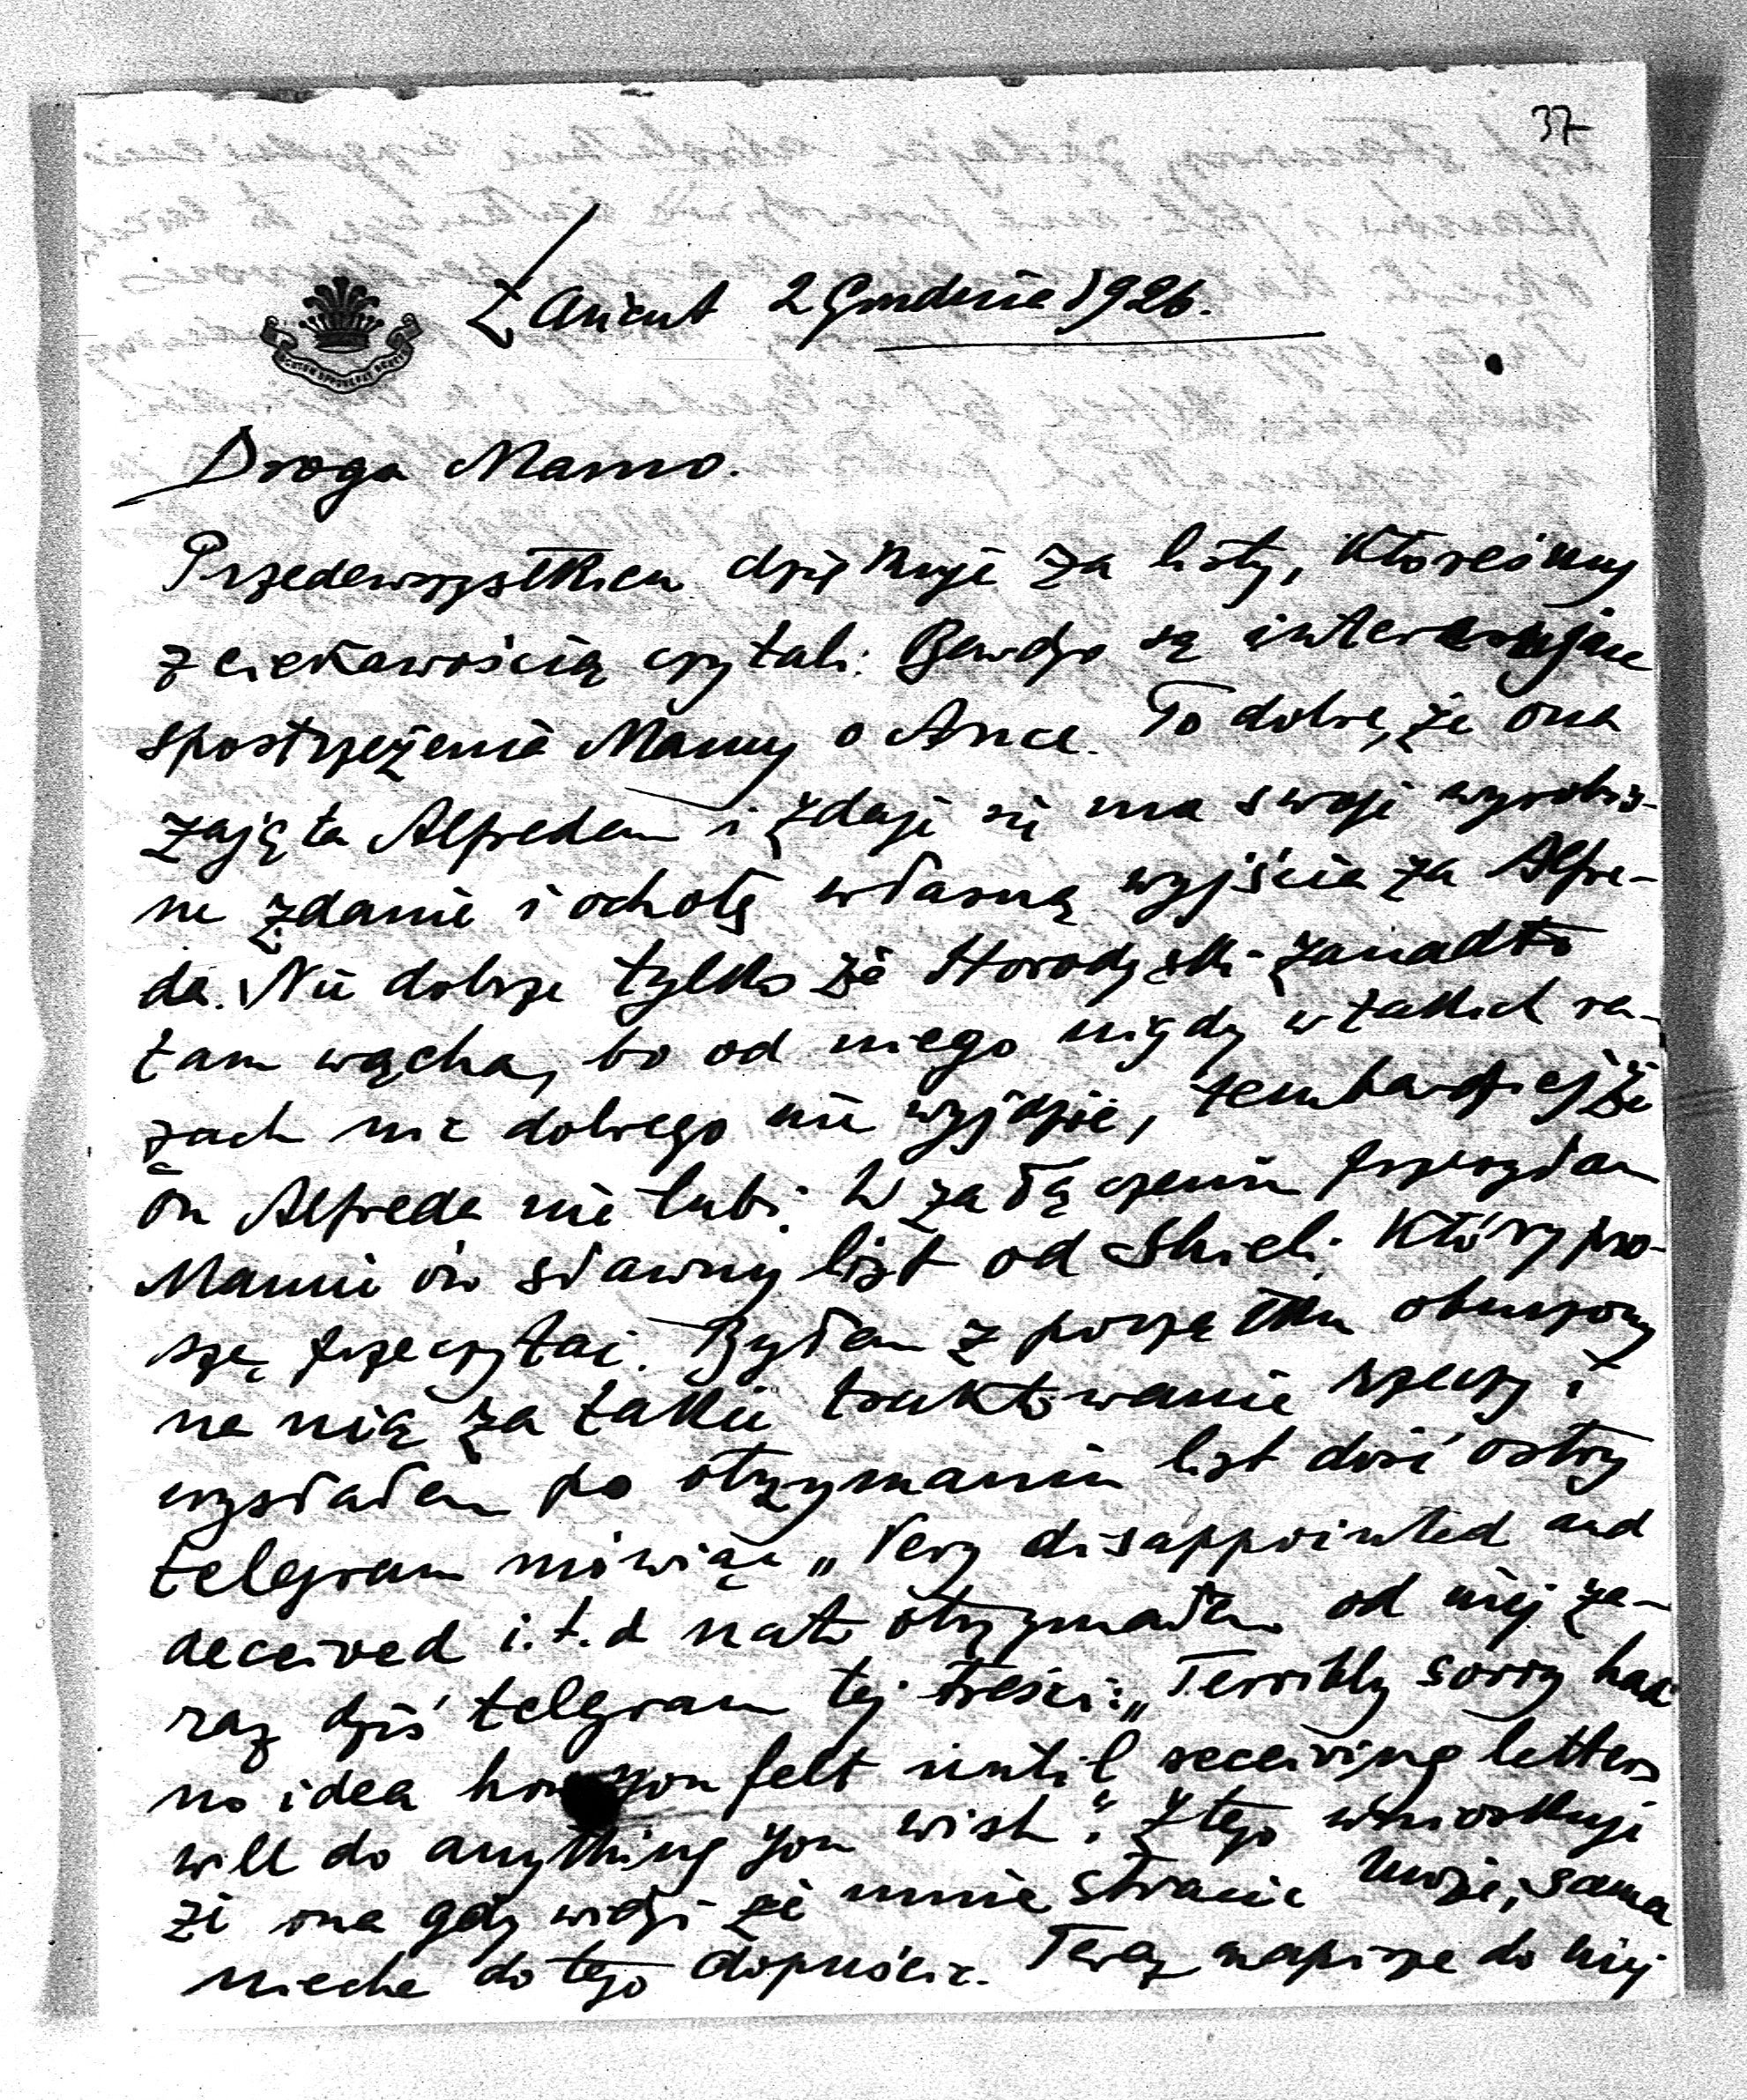 37
Łańcut 2 Grudnia 1926.
Droga Mamo.
Przedewszystkiem dziękuję za listy, któreśmy
z ciekawością czytali. Bardzo są interesujące
spostrzeżenia Mamy o Ance. To dobre, że ona
zajęta Alfredem i zdaje się ma swoje wyrobio-
ne zdanie i ochotę własną wyjścia za Alfre-
da. Nie dobrze tylko że Horodyski zanadto
tam wącha, bo od niego nigdy w takich ra-
zach nic dobrego nie wyjdzie, tembardziej że
on Alfreda nie lubi. W załączeniu przesyłam
Mamie ów sławny list od Shieli, który pro-
szę przeczytać. Byłem z początku oburzony
na nią za takie traktowanie rzeczy i
wysłałem po otrzymaniu list dość ostry
telegram mówiąc „Very disappointed and
deceived i.t.d nato otrzymałem od niej za-
raz dziś telegram tej treści: „Terribly sorry had
no idea how you felt until receiving letters
will do anything you wish". Z tego wnioskuję
że ona gdy widzi że mnie stracić może, sama
niechce do tego dopuścić. Teraz napiszę do niej